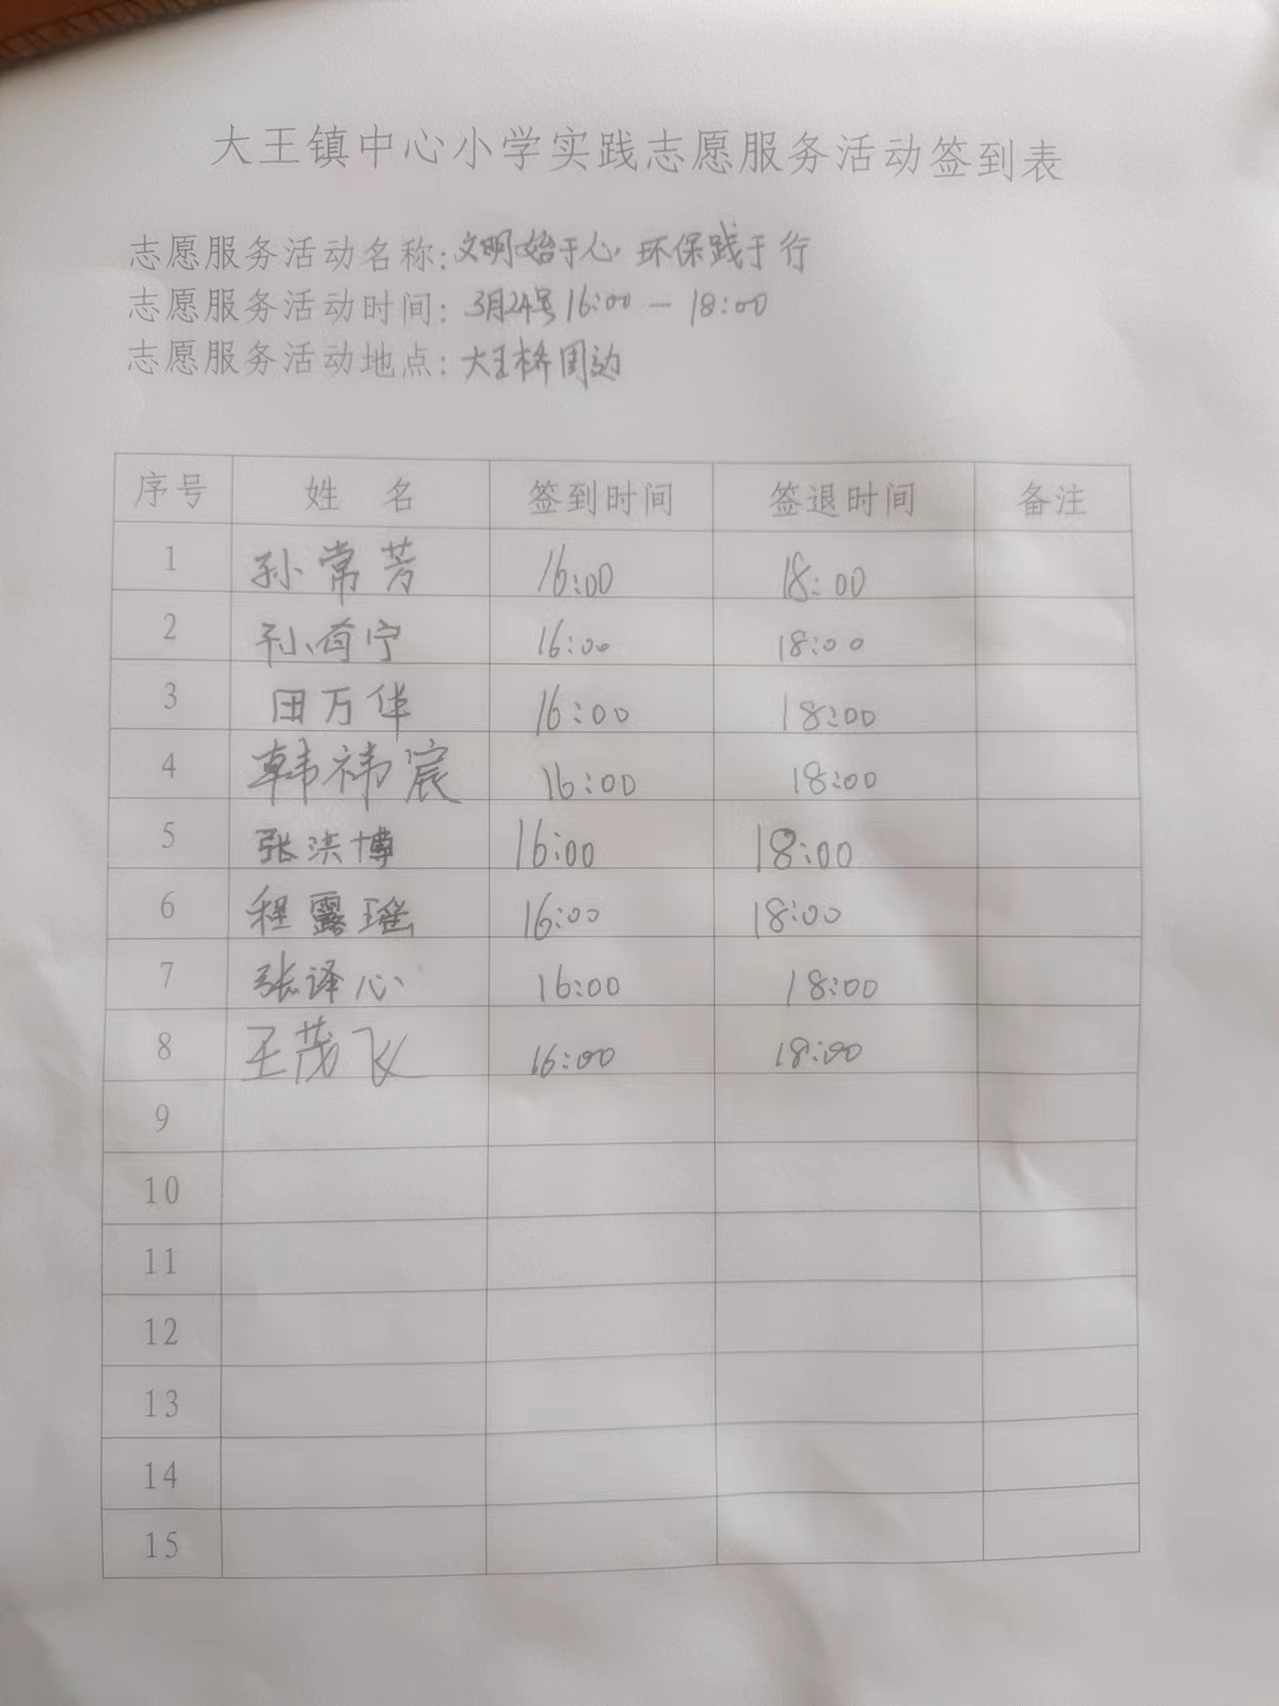 大王镇中心小学实践志愿服务活动签到表
志愿服务活动名称:文明始于心 环保践于行
志愿服务活动时间:3月24号16:00—18:00
志愿服务活动地点:大王桥周边
序号 姓 名 签到时间 签退时间 备注
1 孙常芳 16:00 18:00
2 孙 宁 16:00 18:00
3 田万华 16:00 18:00
4 韩祎宸 16:00 18:00
5 张洪博 16:00 18:00
6 程露瑶 16:00 18:00
7 张译心 16:00 18:00
8 王茂飞 16:00 18:00
9
10
11
12
13
14
15